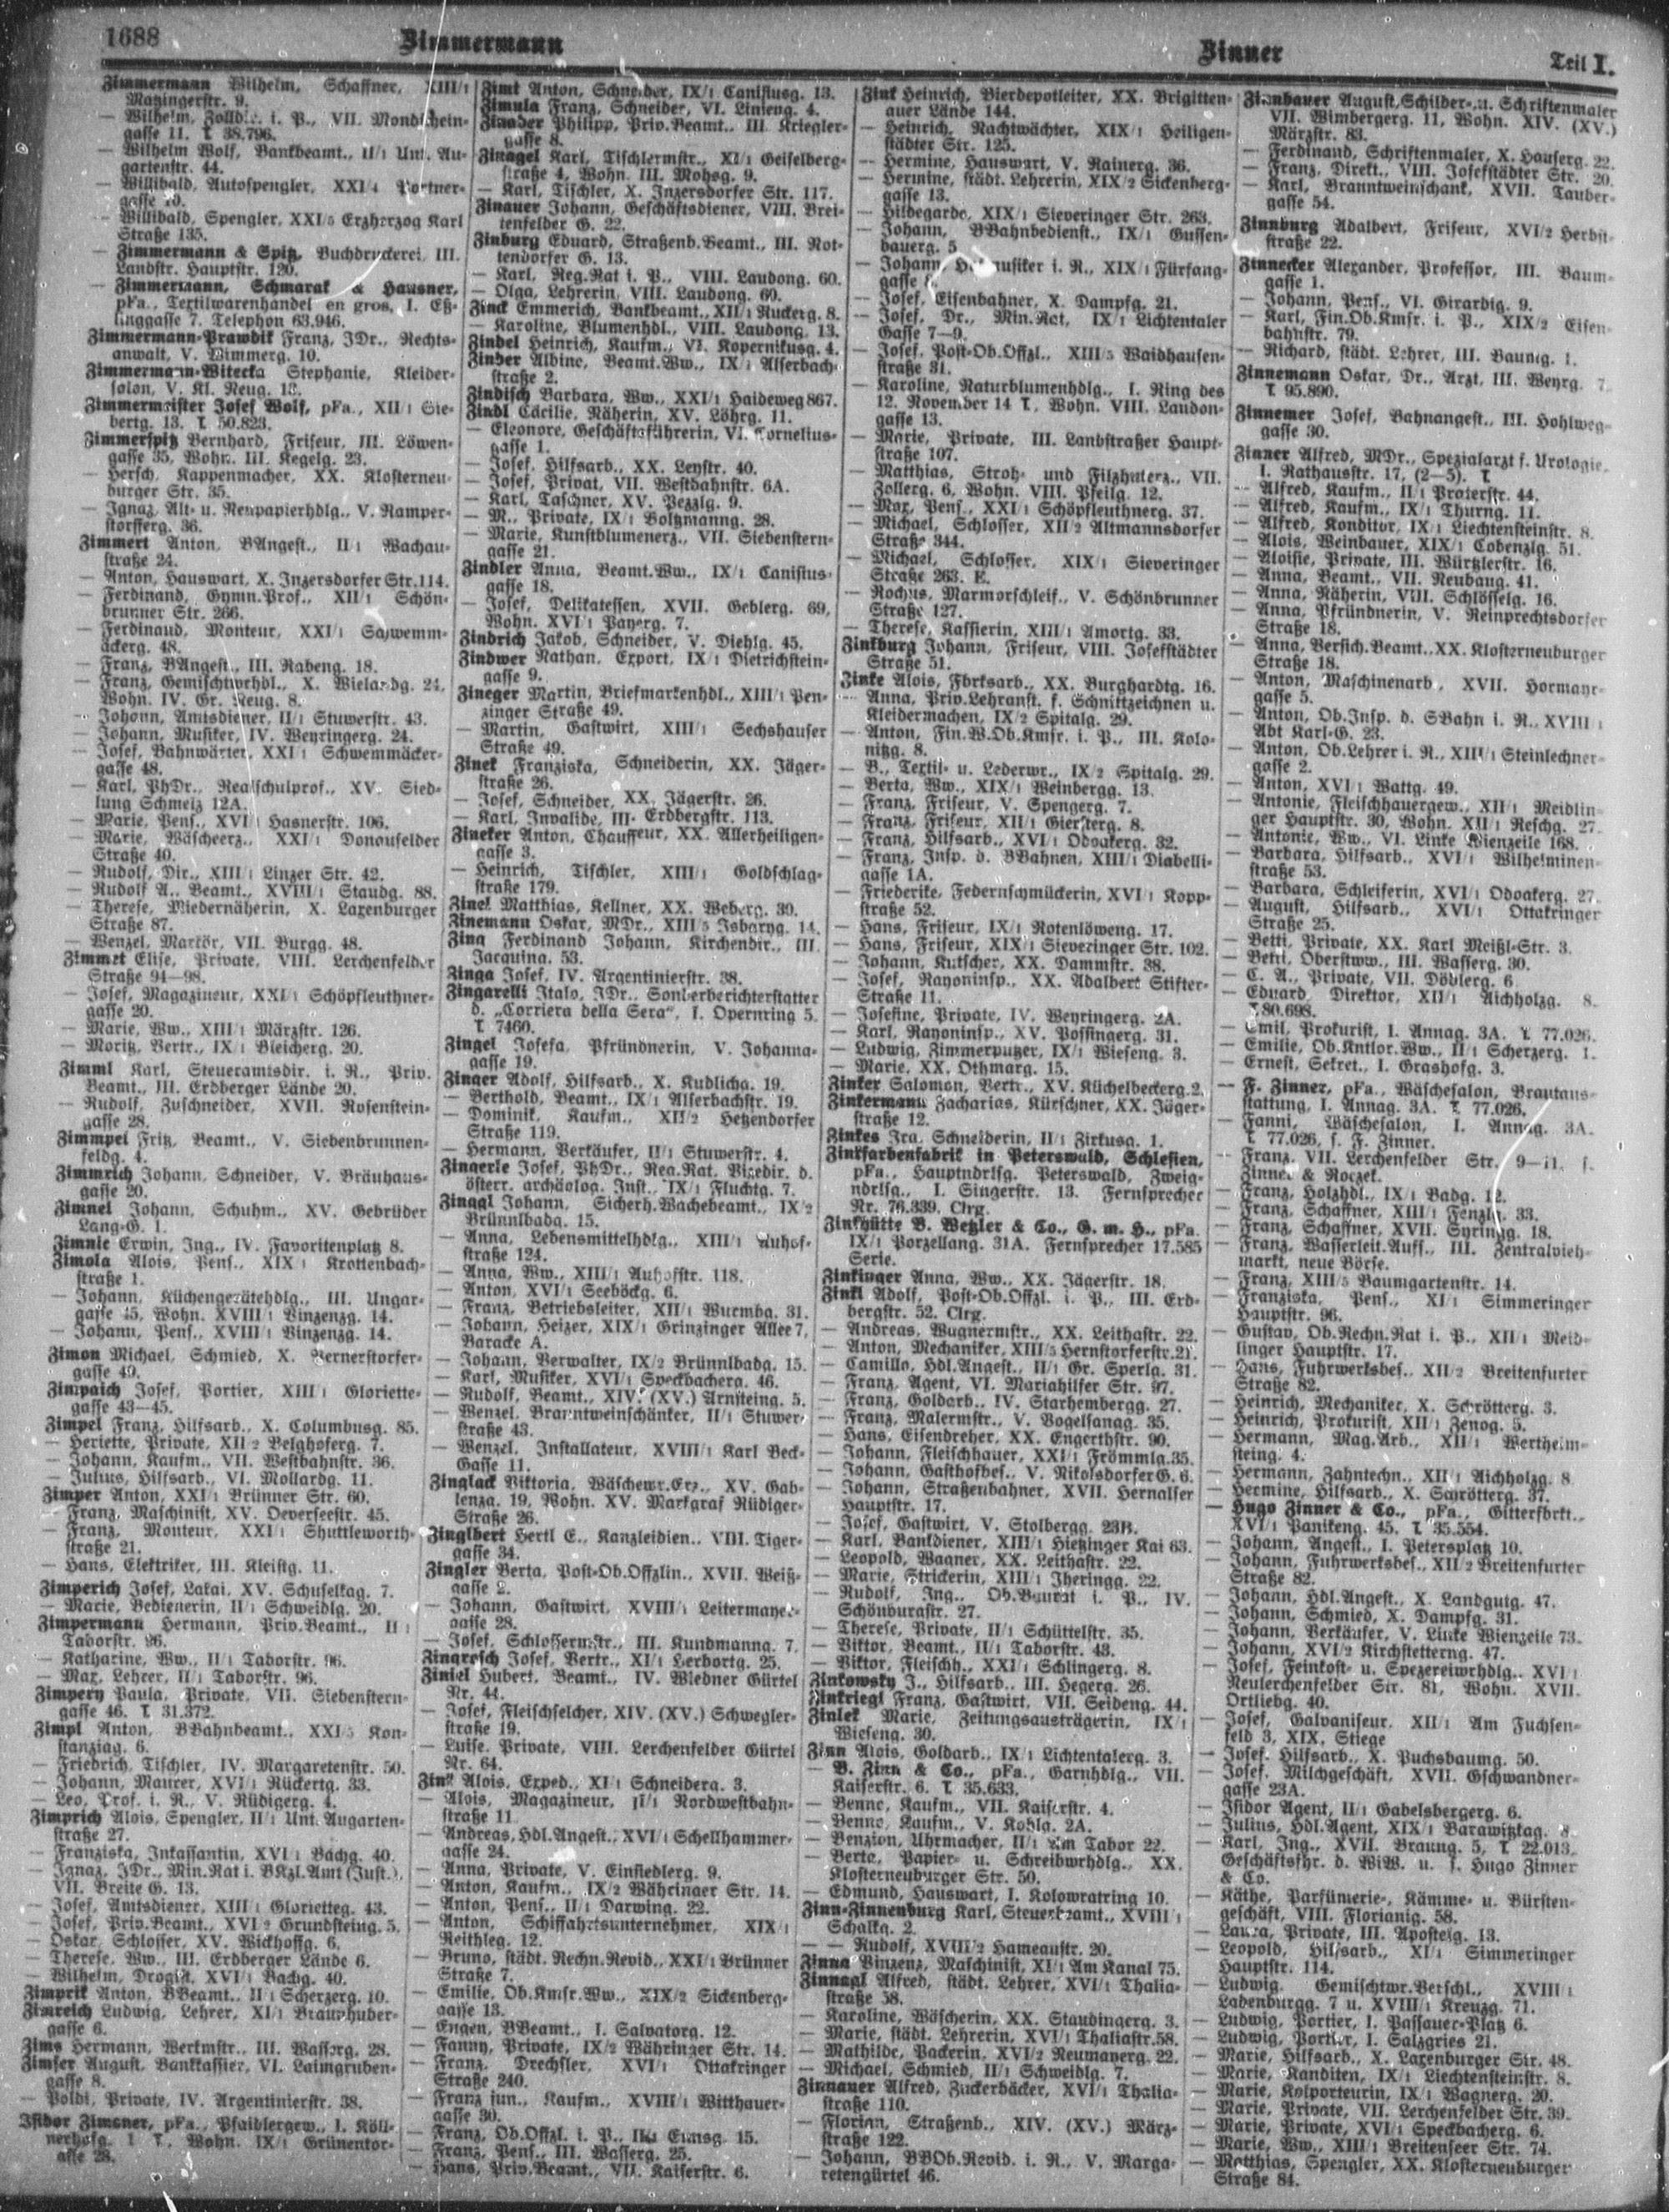 1688
Zimmermann
Zinner
Teil I.
Zimmermann Wilhelm, Schaffner, XIII/1
Matzingerstr. 9.
— Wilhelm, i. P., VII. Mondschein-
gasse 11. T 38.796.
— Wilhelm Wolf, Bankbeamt., II/1 Unt. Au-
gartenstr. 44.
— Willibald, Autospengler, XXI/4
gasse
— Willibald, Spengler, XXI/5 Erzherzog Karl
Straße 135.
— Zimmermann & Spitz, Buchdruckerei, III.
Landstr. Hauptstr. 120.
— Zimmermann, Schmarak & Hausner,
pFa., Textilwarenhandel en gros, I. Eß-
linggasse 7. Telephon 63.946.
Zimmermann-Prawdik Franz, JDr., Rechts-
anwalt, V. Wimmerg. 10.
Zimmermann-Witecka Stephanie, Kleider-
salon, V. Kl. Neug. 13.
Zimmermeister Josef Wolf, pFa., XII/1 Sie-
bertg. 13. T 50.823.
Zimmerspitz Bernhard, Friseur, III. Löwen-
gasse 35, Wohn. III. Kegelg. 23.
— Hersch, Kappenmacher, XX. Klosterneu-
burger Str. 35.
— Ignaz, Alt- u. Neupapierhdlg., V. Ramper-
storfferg. 36.
Zimmert Anton, BAngest., II/1 Wachau-
straße 24.
— Anton, Hauswart, X. Inzersdorfer Str. 114.
— Ferdinand, Gymn.Prof., XII/1 Schön-
brunner Str. 266.
— Ferdinand, Monteur, XXI/1 Schwemm-
äckerg. 48.
— Franz, BAngest., III. Rabeng. 18.
— Franz, Gemischtwrhdl., X. Wielandg. 24,
Wohn. IV. Gr. Neug. 8.
— Johann, Amtsdiener, II/1 Stuwerstr. 43.
— Johann, Musiker, IV. Weyringerg. 24.
— Josef, Bahnwärter, XXI/1 Schwemmäcker-
gasse 48.
— Karl, PhDr., Realschulprof., XV. Sied-
lung Schmelz 12A.
— Marie, Pens., XVI Hasnerstr. 106.
— Marie, Wäscheerz., XXI/1 Donaufelder
Straße 40.
— Rudolf, Dir., XIII/1 Linzer Str. 42.
— Rudolf A., Beamt., XVIII/1 Staudg. 88.
— Therese, Miedernäherin, X. Laxenburger
Straße 87.
— Wenzel, Markör, VII. Burgg. 48.
Zimmet Elise, Private, VIII. Lerchenfelder
Straße 94—98.
— Josef, Magazineur, XXI/1 Schöpfleuthner-
gasse 20.
— Marie, Ww., XIII/1 Märzstr. 126.
— Moritz, Vertr., IX/1 Bleicherg. 20.
Zimml Karl, Steueramtsdir. i. R., Priv.
Beamt., III. Erdberger Lände 20.
— Rudolf, Zuschneider, XVII. Rosenstein-
gasse 28.
Zimmpel Fritz, Beamt., V. Siebenbrunnen-
feldg. 4.
Zimmrich Johann, Schneider, V. Bräuhaus-
gasse 20.
Zimnel Johann, Schuhm., XV. Gebrüder
Lang-G. 1.
Zimnic Erwin, Ing., IV. Favoritenplatz 8.
Zimola Alois, Pens., XIX/1 Krottenbach-
straße 1.
— Johann, Küchengerätehdlg., III. Ungar-
gasse 45, Wohn. XVIII/1 Vinzenzg. 14.
— Johann, Pens., XVIII/1 Vinzenzg. 14.
Zimon Michael, Schmied, X. Pernerstorfer-
gasse 49.
Zimpaich Josef, Portier, XIII/1 Gloriette-
gasse 43—45.
Zimpel Franz, Hilfsarb., X. Columbusg. 85.
— Heriette, Private, XII/2 Belghoferg. 7.
— Johann, Kaufm., VII. Westbahnstr. 36.
— Julius, Hilfsarb., VI. Mollardg. 11.
Zimper Anton, XXI/1 Brünner Str. 60.
— Franz, Maschinist, XV. Oeverseestr. 45.
— Franz, Monteur, XXI/1 Shuttleworth-
straße 21.
— Hans, Elektriker, III. Kleistg. 11.
Zimperich Josef, Lakai, XV. Schuselkag. 7.
— Marie, Bedienerin, II/1 Schweidlg. 20.
Zimpermann Hermann, Priv.Beamt., II/1
Taborstr. 96.
— Katharine, Ww., II/1 Taborstr. 96.
— Max, Lehrer, II/1 Taborstr. 96.
Zimpery Paula, Private, VII. Siebenstern-
gasse 46. T 31.372.
Zimpl Anton, BBahnbeamt., XXI/5 Kon-
stanziag. 6.
— Friedrich, Tischler, IV. Margaretenstr. 50.
— Johann, Maurer, XVI/1 Rückertg. 33.
— Leo, Prof. i. R., V. Rüdigerg. 4.
Zimprich Alois, Spengler, II/1 Unt. Augarten-
straße 27.
— Franziska, Inkassantin, XVI/1 Bachg. 40.
— Ignaz, JDr., Min.Rat i. BKzl.Amt (Just.),
VII. Breite G. 13.
— Josef, Amtsdiener, XIII/1 Glorietteg. 43.
— Josef, Priv.Beamt., XVI/2 Grundsteing. 5.
— Oskar, Schlosser, XV. Wickhoffg. 6.
— Therese, Ww., III. Erdberger Lände 6.
— Wilhelm, Drogist, XVI/1 Bachg. 40.
Zimprik Anton, BBeamt., II/1 Scherzerg. 10.
Zimreich Ludwig, Lehrer, XI/1 Braunhuber-
gasse 6.
Zims Hermann, Werkmstr., III. Wasserg. 28.
Zimser August, Bankkassier, VI. Laimgruben-
gasse 8.
— Poldi, Private, IV. Argentinierstr. 38.
Isidor Zimsner, pFa., Pfaidlergew., I. Köll-
nerhofg. 1 T, Wohn. IX/1 Grünentor-
gasse 28.
Zimt Anton, Schneider, IX/1 Canisiusg. 13.
Zimula Franz, Schneider, VI. Linieng. 4.
Zinader Philipp, Priv.Beamt., III. Kriegler-
gasse 8.
Zinagel Karl, Tischlermstr., XI/1 Geiselberg-
straße 4, Wohn. III. Mohsg. 9.
— Karl, Tischler, X. Inzersdorfer Str. 117.
Zinauer Johann, Geschäftsdiener, VIII. Brei-
tenfelder G. 22.
Zinburg Eduard, Straßenb.Beamt., III. Rot-
tendorfer G. 13.
— Karl, Reg.Rat i. P., VIII. Laudong. 60.
— Olga, Lehrerin, VIII. Laudong. 60.
Zinck Emmerich, Bankbeamt., XII/1 Ruckerg. 8.
— Karoline, Blumenhdl., VIII. Laudong. 13.
Zindel Heinrich, Kaufm., VI. Kopernikusg. 4.
Zinder Albine, Beamt.Ww., IX/1 Alserbach-
straße 2.
Zindisch Barbara, Ww., XXI/1 Haideweg 867.
Zindl Cäcilie, Näherin, XV. Löhrg. 11.
— Eleonore, Geschäftsführerin, VI. Cornelius-
gasse 1.
— Josef, Hilfsarb., XX. Leystr. 40.
— Josef, Privat, VII. Westbahnstr. 6A.
— Karl, Taschner, XV. Pezzlg. 9.
— M., Private, IX/1 Boltzmanng. 28.
— Marie, Kunstblumenerz., VII. Siebenstern-
gasse 21.
Zindler Anna, Beamt.Ww., IX/1 Canisius-
gasse 18.
— Josef, Delikatessen, XVII. Geblerg. 69,
Wohn. XVI/1 Payerg. 7.
Zindrich Jakob, Schneider, V. Diehlg. 45.
Zindwer Nathan, Export, IX/1 Dietrichstein-
gasse 9.
Zineger Martin, Briefmarkenhdl., XIII/1 Pen-
zinger Straße 49.
— Martin, Gastwirt, XIII/1 Sechshauser
Straße 49.
Zinek Franziska, Schneiderin, XX. Jäger-
straße 26.
— Josef, Schneider, XX. Jägerstr. 26.
— Karl, Invalide, III. Erdbergstr. 113.
Zineker Anton, Chauffeur, XX. Allerheiligen-
gasse 3.
— Heinrich, Tischler, XIII/1 Goldschlag-
straße 179.
Zinel Matthias, Kellner, XX. Weberg. 39.
Zinemann Oskar, MDr., XIII/5 Isbaryg. 14.
Zing Ferdinand Johann, Kirchendir., III.
Jacquing. 53.
Zinga Josef, IV. Argentinierstr. 38.
Zingarelli Italo, JDr., Sonderberichterstatter
d. „Corriera della Sera“, I. Opernring 5.
T 7460.
Zingel Josefa, Pfründnerin, V. Johanna-
gasse 19.
Zinger Adolf, Hilfsarb., X. Kudlichg. 19.
— Berthold, Beamt., IX/1 Alserbachstr. 19.
— Dominik, Kaufm., XII/2 Hetzendorfer
Straße 119.
— Hermann, Verkäufer, II/1 Stuwerstr. 4.
Zingerle Josef, PhDr., Reg.Rat, Vizedir. d.
österr. archäolog. Inst., IX/1 Fluchtg. 7.
Zinggl Johann, Sicherh.Wachebeamt., IX/2
Brünnlbadg. 15.
— Anna, Lebensmittelhdlg., XIII/1 Auhof-
straße 124.
— Anna, Ww., XIII/1 Auhofstr. 118.
— Anton, XVI/1 Seeböckg. 6.
— Franz, Betriebsleiter, XII/1 Wurmbg. 31.
— Johann, Heizer, XIX/1 Grinzinger Allee 7,
Baracke A.
— Johann, Verwalter, IX/2 Brünnlbadg. 15.
— Karl, Musiker, XVI/1 Speckbacherg. 46.
— Rudolf, Beamt., XIV. (XV.) Arnsteing. 5.
— Wenzel, Branntweinschänker, II/1 Stuwer-
straße 43.
— Wenzel, Installateur, XVIII/1 Karl Beck-
Gasse 11.
Zinglack Viktoria, Wäschewr.Erz., XV. Gab-
lenzg. 19, Wohn. XV. Markgraf Rüdiger-
Straße 26.
Zinglbert Hertl E., Kanzleidien., VIII. Tiger-
gasse 34.
Zingler Berta, Post-Ob.Offzlin., XVII. Weiß-
gasse 2.
— Johann, Gastwirt, XVIII/1 Leitermayer-
gasse 28.
— Josef, Schlossermstr., III. Kundmanng. 7.
Zingrosch Josef, Vertr., XI/1 Lerbortg. 25.
Ziniel Hubert, Beamt., IV. Wiedner Gürtel
Nr. 44.
— Josef, Fleischselcher, XIV. (XV.) Schwegler-
straße 19.
— Luise, Private, VIII. Lerchenfelder Gürtel
Nr. 64.
Zink Alois, Exped., XI/1 Schneiderg. 3.
— Alois, Magazineur, II/1 Nordwestbahn-
straße 11.
— Andreas, Hdl.Angest., XVI/1 Schellhammer-
gasse 24.
— Anna, Private, V. Einsiedlerg. 9.
— Anton, Kaufm., IX/2 Währinger Str. 14.
— Anton, Pens., II/1 Darwing. 22.
— Anton, Schiffahrtsunternehmer, XIX/1
Reithleg. 12.
— Bruno, städt. Rechn.Revid., XXI/1 Brünner
Straße 7.
— Emilie, Ob.Kmsr.Ww., XIX/2 Sickenberg-
gasse 13.
— Eugen, BBeamt., I. Salvatorg. 12.
— Fanny, Private, IX/2 Währinger Str. 14.
— Franz, Drechsler, XVI/1 Ottakringer
Straße 240.
— Franz jun., Kaufm., XVIII/1 Witthauer-
gasse 30.
— Franz, Ob.Offzl. i. P., 15.
— Franz, Pens., III. Wasserg. 25.
— Hans, Priv.Beamt., VII. Kaiserstr. 6.
Zink Heinrich, Bierdepotleiter, XX. Brigitten-
auer Lände 144.
— Heinrich, Nachtwächter, XIX/1 Heiligen-
städter Str. 125.
— Hermine, Hauswart, V. Rainerg. 36.
— Hermine, städt. Lehrerin, XIX/2 Sickenberg-
gasse 13.
— Hildegarde, XIX/1 Sieveringer Str. 263.
— Johann, BBahnbedienst., IX/1 Gussen-
bauerg. 5
— Johann, i. R., XIX/1 Fürfang-
gasse
— Josef, Eisenbahner, X. Dampfg. 21.
— Josef, Dr., Min.Rat, IX/1 Lichtentaler
Gasse 7—9.
— Josef, Post-Ob.Offzl., XIII/5 Waidhausen-
straße 31.
— Karoline, Naturblumenhdlg., I. Ring des
12. November 14 T, Wohn. VIII. Laudon-
gasse 13.
— Marie, Private, III. Landstraßer Haupt-
straße 107.
— Matthias, Stroh- und Filzhuterz., VII.
Zollerg. 6, Wohn. VIII. Pfeilg. 12.
— Max, Pens., XXI/1 Schöpfleuthnerg. 37.
— Michael, Schlosser, XII/2 Altmannsdorfer
Straße 344.
— Michael, Schlosser, XIX/1 Sieveringer
Straße 263. E.
— Rochus, Marmorschleif., V. Schönbrunner
Straße 127.
— Therese, Kassierin, XIII/1 Amortg. 33.
Zinkburg Johann, Friseur, VIII. Josefstädter
Straße 51.
Zinke Alois, Fbrksarb., XX. Burghardtg. 16.
— Anna, Priv.Lehranst. f. Schnittzeichnen u.
Kleidermachen, IX/2 Spitalg. 29.
— Anton, Fin.W.Ob.Kmsr. i. P., III. Kolo-
nitzg. 8.
— B., Textil- u. Lederwr., IX/2 Spitalg. 29.
— Berta, Ww., XIX/1 Weinbergg. 13.
— Franz, Friseur, V. Spengerg. 7.
— Franz, Friseur, XII/1 Giersterg. 8.
— Franz, Hilfsarb., XVI/1 Odoakerg. 32.
— Franz, Insp. d. BBahnen, XIII/1 Diabelli-
gasse 1A.
— Friederike, Federnschmückerin, XVI/1 Kopp-
straße 52.
— Hans, Friseur, IX/1 Rotenlöweng. 17.
— Hans, Friseur, XIX/1 Sieveringer Str. 102.
— Johann, Kutscher, XX. Dammstr. 38.
— Josef, Rayoninsp., XX. Adalbert Stifter-
Straße 11.
— Josefine, Private, IV. Weyringerg. 2A.
— Karl, Rayoninsp., XV. Possingerg. 31.
— Ludwig, Zimmerputzer, IX/1 Wieseng. 3.
— Marie, XX. Othmarg. 15.
Zinker Salomon, Vertr., XV. Küchelbeckerg. 2.
Zinkermann Zacharias, Kürschner, XX. Jäger-
straße 12.
Zinkes Ira, Schneiderin, II/1 Zirkusg. 1.
Zinkfarbenfabrik in Peterswald, Schlesien,
pFa., Hauptndrlsg. Peterswald, Zweig-
ndrlsg., I. Singerstr. 13. Fernsprecher
Nr. 76.339. Clrg.
Zinkhütte B. Wetzler & Co., G. m. H., pFa.
IX/1 Porzellang. 31A. Fernsprecher 17.585
Serie.
Zinkinger Anna, Ww., XX. Jägerstr. 18.
Zinkl Adolf, Post-Ob.Offzl. i. P., III. Erd-
bergstr. 52. Clrg.
— Andreas, Wugnermstr., XX. Leithastr. 22.
— Anton, Mechaniker, XIII/5 Hernstorferstr. 21.
— Camillo, Hdl.Angest., II/1 Gr. Sperlg. 31.
— Franz, Agent, VI. Mariahilfer Str. 97.
— Franz, Goldarb., IV. Starhembergg. 27.
— Franz, Malermstr., V. Vogelsangg. 35.
— Hans, Eisendreher, XX. Engerthstr. 90.
— Johann, Fleischhauer, XXI/1 Frömmlg. 35.
— Johann, Gasthofbes., V. Nikolsdorfer G. 6.
— Johann, Straßenbahner, XVII. Hernalser
Hauptstr. 17.
— Josef, Gastwirt, V. Stolbergg. 23B.
— Karl, Bankdiener, XIII/1 Hietzinger Kai 63.
— Leopold, Wagner, XX. Leithastr. 22.
— Marie, Strickerin, XIII/1 Jheringg. 22.
— Rudolf, Ing., Ob.Baurat i. P., IV.
Schönburgstr. 27.
— Therese, Private, II/1 Schüttelstr. 35.
— Viktor, Beamt., II/1 Taborstr. 43.
— Viktor, Fleischh., XXI/1 Schlingerg. 8.
Zinkowsky J., Hilfsarb., III. Hegerg. 26.
Zinkriegl Franz, Gastwirt, VII. Seideng. 44.
Zinlek Marie, Zeitungsausträgerin, IX/1
Wieseng. 30.
Zinn Alois, Goldarb., IX/1 Lichtentalerg. 3.
— B. Zinn & Co., pFa., Garnhdlg., VII.
Kaiserstr. 6. T 35.633.
— Benno, Kaufm., VII. Kaiserstr. 4.
— Benno, Kaufm., V. Kohlg. 2A.
— Benzion, Uhrmacher, II/1 Am Tabor 22.
— Berta, Papier- u. Schreibwrhdlg., XX.
Klosterneuburger Str. 50.
— Edmund, Hauswart, I. Kolowratring 10.
Zinn-Zinnenburg Karl, Steuerbeamt., XVIII/1
Schalkg. 2.
— — Rudolf, XVIII/2 Hameaustr. 20.
Zinna Vinzenz, Maschinist, XI/1 Am Kanal 75.
Zinnagl Alfred, städt. Lehrer, XVI/1 Thalia-
straße 58.
— Karoline, Wäscherin, XX. Staudingerg. 3.
— Marie, städt. Lehrerin, XVI/1 Thaliastr. 58.
— Mathilde, Packerin, XVI/2 Neumayerg. 22.
— Michael, Schmied, II/1 Schweidlg. 7.
Zinnauer Alfred, Zuckerbäcker, XVI/1 Thalia-
straße 110.
— Florian, Straßenb., XIV. (XV.) März-
straße 122.
— Johann, BBOb.Revid. i. R., V. Marga-
retengürtel 46.
Zinnbauer August, Schilder- u. Schriftenmaler
VII. Wimbergerg. 11, Wohn. XIV. (XV.)
Märzstr. 83.
— Ferdinand, Schriftenmaler, X. Hauserg. 22.
— Franz, Direkt., VIII. Josefstädter Str. 20.
— Karl, Branntweinschank, XVII. Tauber-
gasse 54.
Zinnburg Adalbert, Friseur, XVI/2 Herbst-
straße 22.
Zinnecker Alexander, Professor, III. Baum-
gasse 1.
— Johann, Pens., VI. Girardig. 9.
— Karl, Fin.Ob.Kmsr. i. P., XIX/2 Eisen-
bahnstr. 79.
— Richard, städt. Lehrer, III. Baumg. 1.
Zinnemann Oskar, Dr., Arzt, III. Weyrg. 7.
T 95.890.
Zinnemer Josef, Bahnangest., III. Hohlweg-
gasse 30.
Zinner Alfred, MDr., Spezialarzt f. Urologie,
I. Rathausstr. 17, (2—5). T
— Alfred, Kaufm., II/1 Praterstr. 44.
— Alfred, Kaufm., IX/1 Thurng. 11.
— Alfred, Konditor, IX/1 Liechtensteinstr. 8.
— Alois, Weinbauer, XIX/1 Cobenzlg. 51.
— Aloisie, Private, III. Würtzlerstr. 16.
— Anna, Beamt., VII. Neubaug. 41.
— Anna, Näherin, VIII. Schlösselg. 16.
— Anna, Pfründnerin, V. Reinprechtsdorfer
Straße 18.
— Anna, Versich.Beamt., XX. Klosterneuburger
Straße 18.
— Anton, Maschinenarb., XVII. Hormayr-
gasse 5.
— Anton, Ob.Insp. d. SBahn i. R., XVIII/1
Abt Karl-G. 23.
— Anton, Ob.Lehrer i. R., XIII/1 Steinlechner-
gasse 2.
— Anton, XVI/1 Wattg. 49.
— Antonie, Fleischhauergew., XII/1 Meidlin-
ger Hauptstr. 30, Wohn. XII/1 Reschg. 27.
— Antonie, Ww., VI. Linke Wienzeile 168.
— Barbara, Hilfsarb., XVI/1 Wilhelminen-
straße 53.
— Barbara, Schleiferin, XVI/1 Odoakerg. 27.
— August, Hilfsarb., XVI/1 Ottakringer
Straße 25.
— Betti, Private, XX. Karl Meißl-Str. 3.
— Betti, Oberstww., III. Wasserg. 30.
— C. A., Private, VII. Döblerg. 6
— Eduard, Direktor, XII/1 Aichholzg. 8.
T 80.698.
— Emil, Prokurist, I. Annag. 3A. T 77.026.
— Emilie, Ob.Kntlor.Ww., II/1 Scherzerg. 1.
— Ernest, Sekret., I. Grashofg. 3.
— F. Zinner, pFa., Wäschesalon, Brautaus-
stattung, I. Annag. 3A. T 77.026.
— Fanni, Wäschesalon, I. Annag. 3A.
T 77.026, s. F. Zinner.
— Franz, VII. Lerchenfelder Str. 9—11, s.
Zinner & Roczek.
— Franz, Holzhdl., IX/1 Badg. 12.
— Franz, Schaffner, XIII/1 Fenzlg. 33.
— Franz, Schaffner, XVII. Syringg. 18.
— Franz, Wasserleit.Auss., III. Zentralvieh-
markt, neue Börse.
— Franz, XIII/5 Baumgartenstr. 14.
— Franziska, Pens., XI/1 Simmeringer
Hauptstr. 96.
— Gustav, Ob.Rechn.Rat i. P., XII/1 Meid-
linger Hauptstr. 17.
— Hans, Fuhrwerksbes., XII/2 Breitenfurter
Straße 82.
— Heinrich, Mechaniker, X. Schrötterg. 3.
— Heinrich, Prokurist, XII/1 Zenog. 5.
— Hermann, Mag.Arb., XII/1 Wertheim-
steing. 4.
— Hermann, Zahntechn., XII/1 Aichholzg. 8.
— Hermine, Hilfsarb., X. Schrötterg. 37.
— Hugo Zinner & Co., pFa., Gitterfbrkt.,
XVI/1 Panikeng. 45. T 35.554.
— Johann, Angest., I. Petersplatz 10.
— Johann, Fuhrwerksbes., XII/2 Breitenfurter
Straße 82.
— Johann, Hdl.Angest., X. Landgutg. 47.
— Johann, Schmied, X. Dampfg. 31.
— Johann, Verkäufer, V. Linke Wienzeile 73.
— Johann, XVI/2 Kirchstetterng. 47.
— Josef, Feinkost- u. Spezereiwrhdlg., XVI/1
Neulerchenfelder Str. 81, Wohn. XVII.
Ortliebg. 40.
— Josef, Galvaniseur, XII/1 Am Fuchsen-
feld 3, XIX. Stiege
— Josef, Hilfsarb., X. Puchsbaumg. 50.
— Josef, Milchgeschäft, XVII. Gschwandner-
gasse 23A.
— Isidor Agent, II/1 Gabelsbergerg. 6.
— Julius, Hdl.Agent, XIX/1 Barawitzkag. 8.
— Karl, Ing., XVII. Braung. 5, T 22.013.
Geschäftsfhr. d. WiW. u. s. Hugo Zinner
& Co.
— Käthe, Parfümerie-, Kämme- u. Bürsten-
geschäft, VIII. Florianig. 58.
— Laura, Private, III. Apostelg. 13.
— Leopold, Hilfsarb., XI/1 Simmeringer
Hauptstr. 114.
— Ludwig, Gemischtwr.Verschl., XVIII/1
Ladenburgg. 7 u. XVIII/1 Kreuzg. 71.
— Ludwig, Portier, I. Passauer-Platz 6.
— Ludwig, Portier, I. Salzgries 21.
— Marie, Hilfsarb., X. Laxenburger Str. 48.
— Marie, Kanditen, IX/1 Liechtensteinstr. 8.
— Marie, Kolporteurin, IX/1 Wagnerg. 20.
— Marie, Private, VII. Lerchenfelder Str. 39.
— Marie, Private, XVI/1 Speckbacherg. 6.
— Marie, Ww., XIII/1 Breitenseer Str. 74.
— Matthias, Spengler, XX. Klosterneuburger
Straße 84.